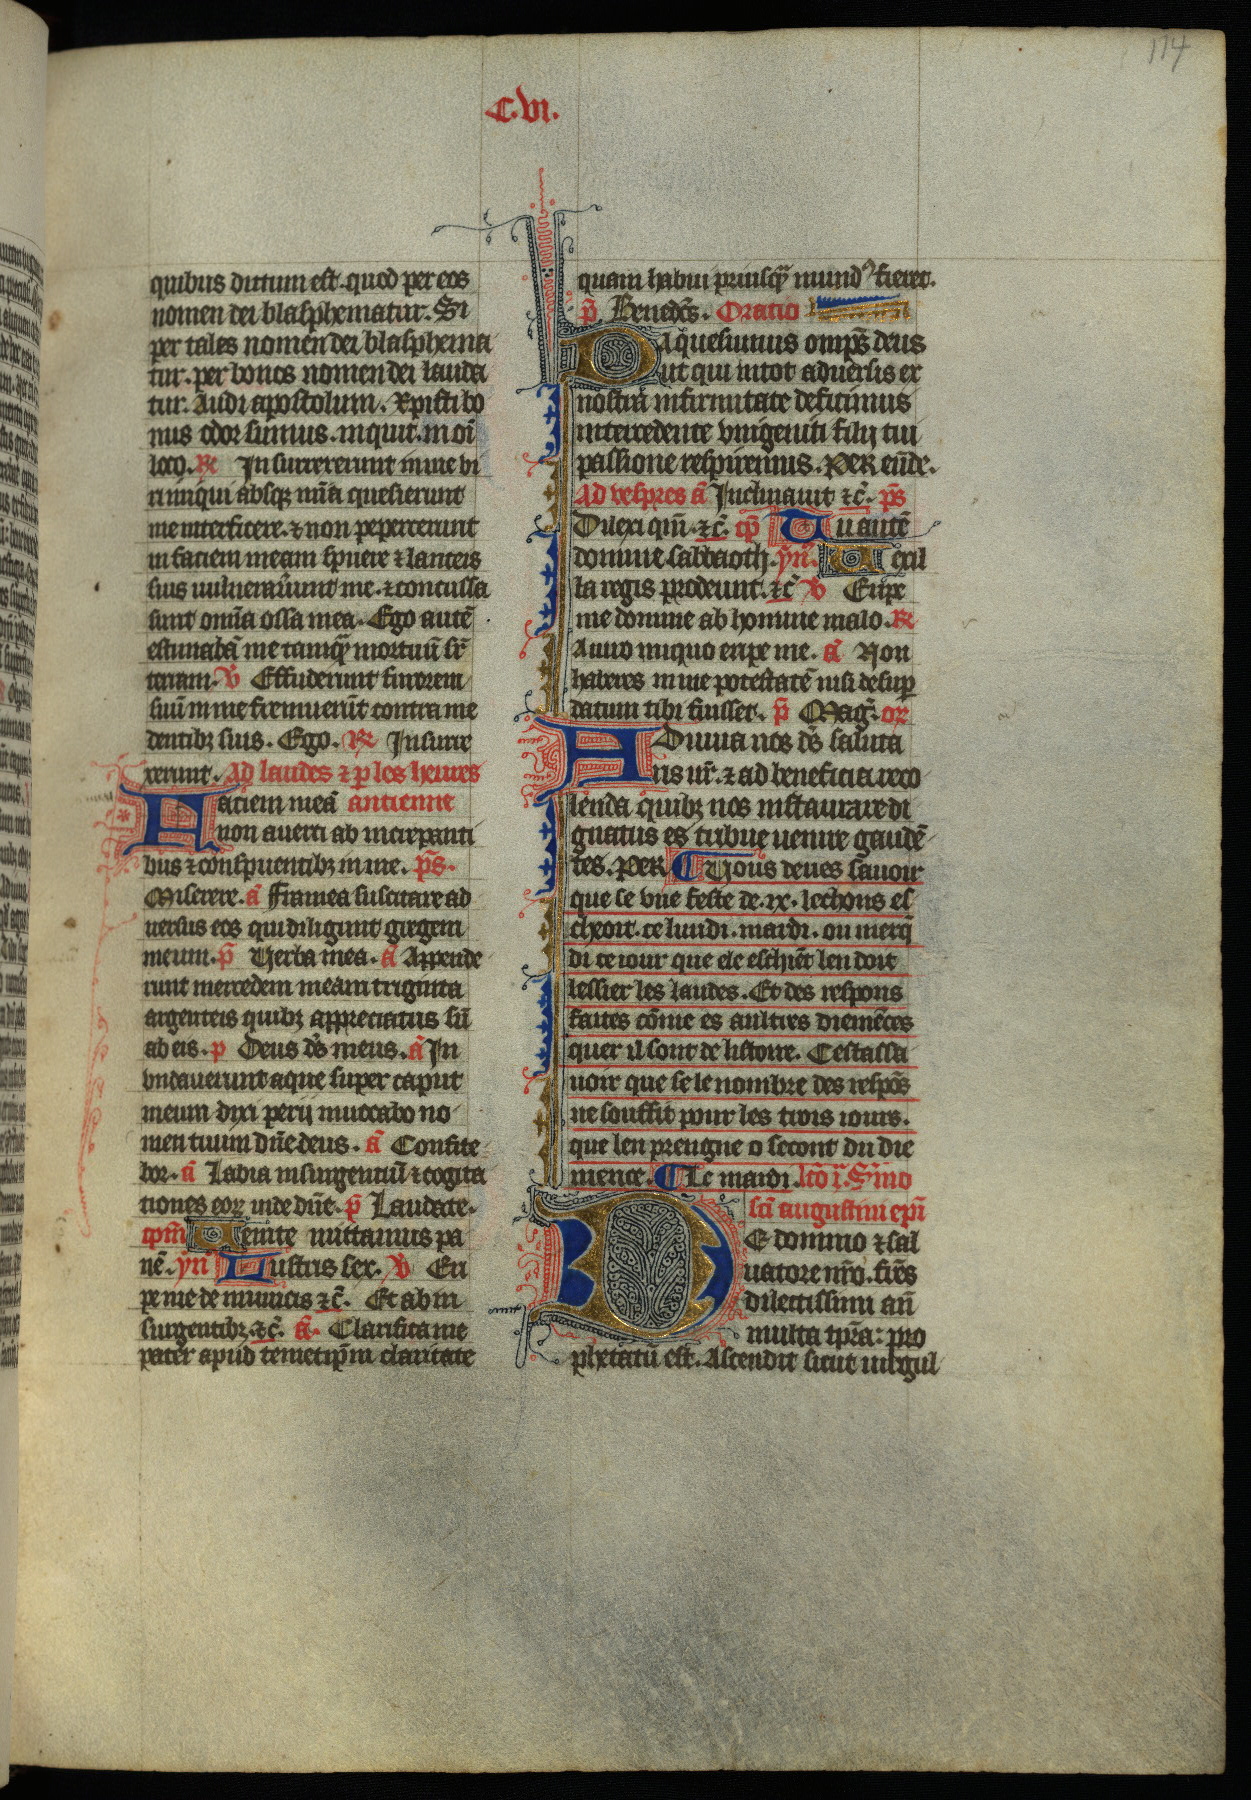 114
C.VI.
quibus dictum est. quod per eos
nomen dei blasphematur. Si
per tales nomen dei blasphema
tur. per bonos nomen dei lauda
tur. Audi apostolum. Xpisti bo
nus odor sumus. inquit. in oi̅
loco. R̸ Insurrexerunt in me vi
ri iniqui absqꝫ mi̅a quesierunt
me interficere. ⁊ non pepercerunt
in faciem meam spuere ⁊ lanceis
suis uulnerauerunt me. ⁊ concussa
sunt om̅ia ossa mea. Ego aute̅
estimaba̅ me tamqȝ mortuu̅ sr̅
terram. V̸ Effuderunt furorem
suu̅ in me fremueru̅t contra me
dentibꝫ suis. Ego. R̸ Insurre
xerunt. Ad laudes ⁊ p les heures
Faciem mea̅ antienne
non auerti ab increpanti
bus ⁊ conspuentibꝫ in me. p̅s.
Miserere. a̅ Framea suscitare ad
uersus eos qui diligunt gregem
meum. p̅ Uerba mea. a̅ Appende
runt mercedem meam triginta
argenteis quibꝫ appreciatus su̅
ab eis. p Deus ds̅ meus. a̅ In
vndauerunt aque super caput
meum dixi perij inuocabo no
men tuum dn̅e deus. a̅ Confite
bor. a̅ Labia insurgentiu̅ ⁊ cogita
tiones eoꝝ uide dn̅e. p̅ Laudate.
cpm̅ Uenite mittamus pa
ne̅. yn̅ Lustris sex. V̸ Eri
pe me de inimicis ⁊c̅. Et ab in
surgentibꝫ. ⁊c̅. a̅. Clarifica me
pater apud temetip̅m claritate
quam habui priusqȝ mundꝰ fieret.
p̅ Bened̅s. Oratio
Da quesumus omp̅s deus
ut qui in tot aduersis ex
nostra infirmitate deficimus
intercedente vnigeniti filij tui
passione respiremus. PER eu̅de.
Ad vespres a̅ Inclinauit ⁊c̅. p̅s
Dilexi qm̅. ⁊c̅. cp̅ Tu aute̅
domine sabbaoth. yn̅. Uexil
la regis prodeunt. ⁊c̅ V̸ Eripe
me domine ab homine malo. R̸
A uiro iniquo eripe me. a̅ Non
haberes in me potestate̅ nisi desup̱
datum tibi fuisset. p̅ Mag̅. or
Adiuua nos ds̅ saluta
ris nr̅. ⁊ ad beneficia reco
lenda quibꝫ nos instaurare di
gnatus es tribue uenire gaude̅
tes. PER ¶ Uous deues sauoir
que se vne feste de .ix. lechons es
cheoit. ce lundi. mardi. ou merq̅
di ce iour que ele eschiet len doit
lessier les laudes. Et des respons
faites co̅me es aultres dieme̅ces
quer il sont de listoire. Cest assa
uoir que se le nombre des respo̅s
ne souffit pour les trois iours.
que len prengne o secont du die
mence. ¶ Le mardi. lc̅o i. S̅mo
sc̅i augustini epi̅
DE domino ⁊ sal
uatore nr̅o. fr̅es
dilectissimi an̅
multa tpr̅a: pro
phetatu̅ est. Ascendit sicut uirgul